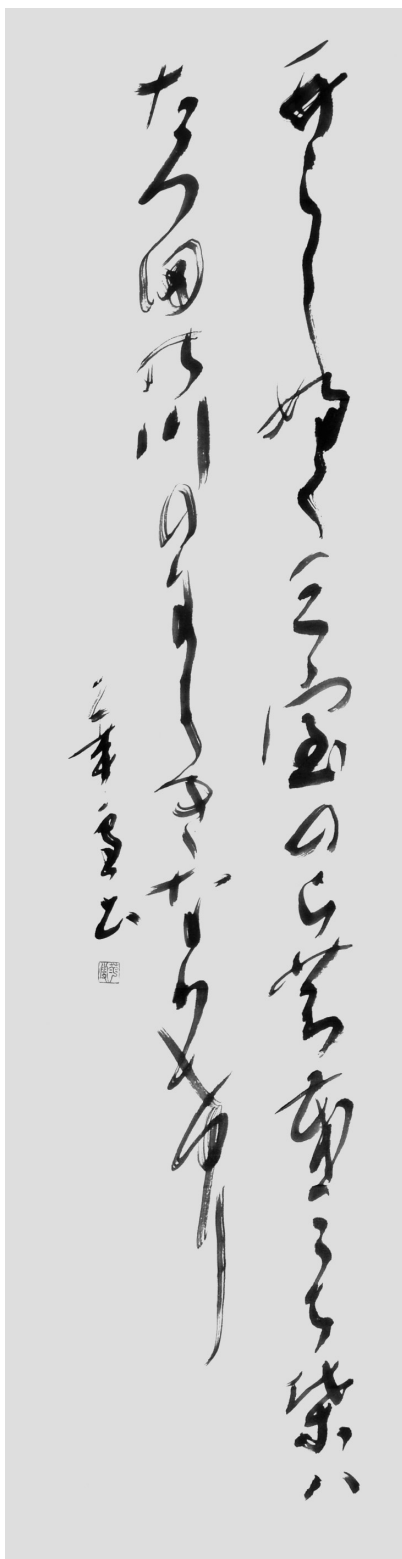 あらし婦く三室の山農裳みち葉ハ
たつ田能川のにしきなりけり